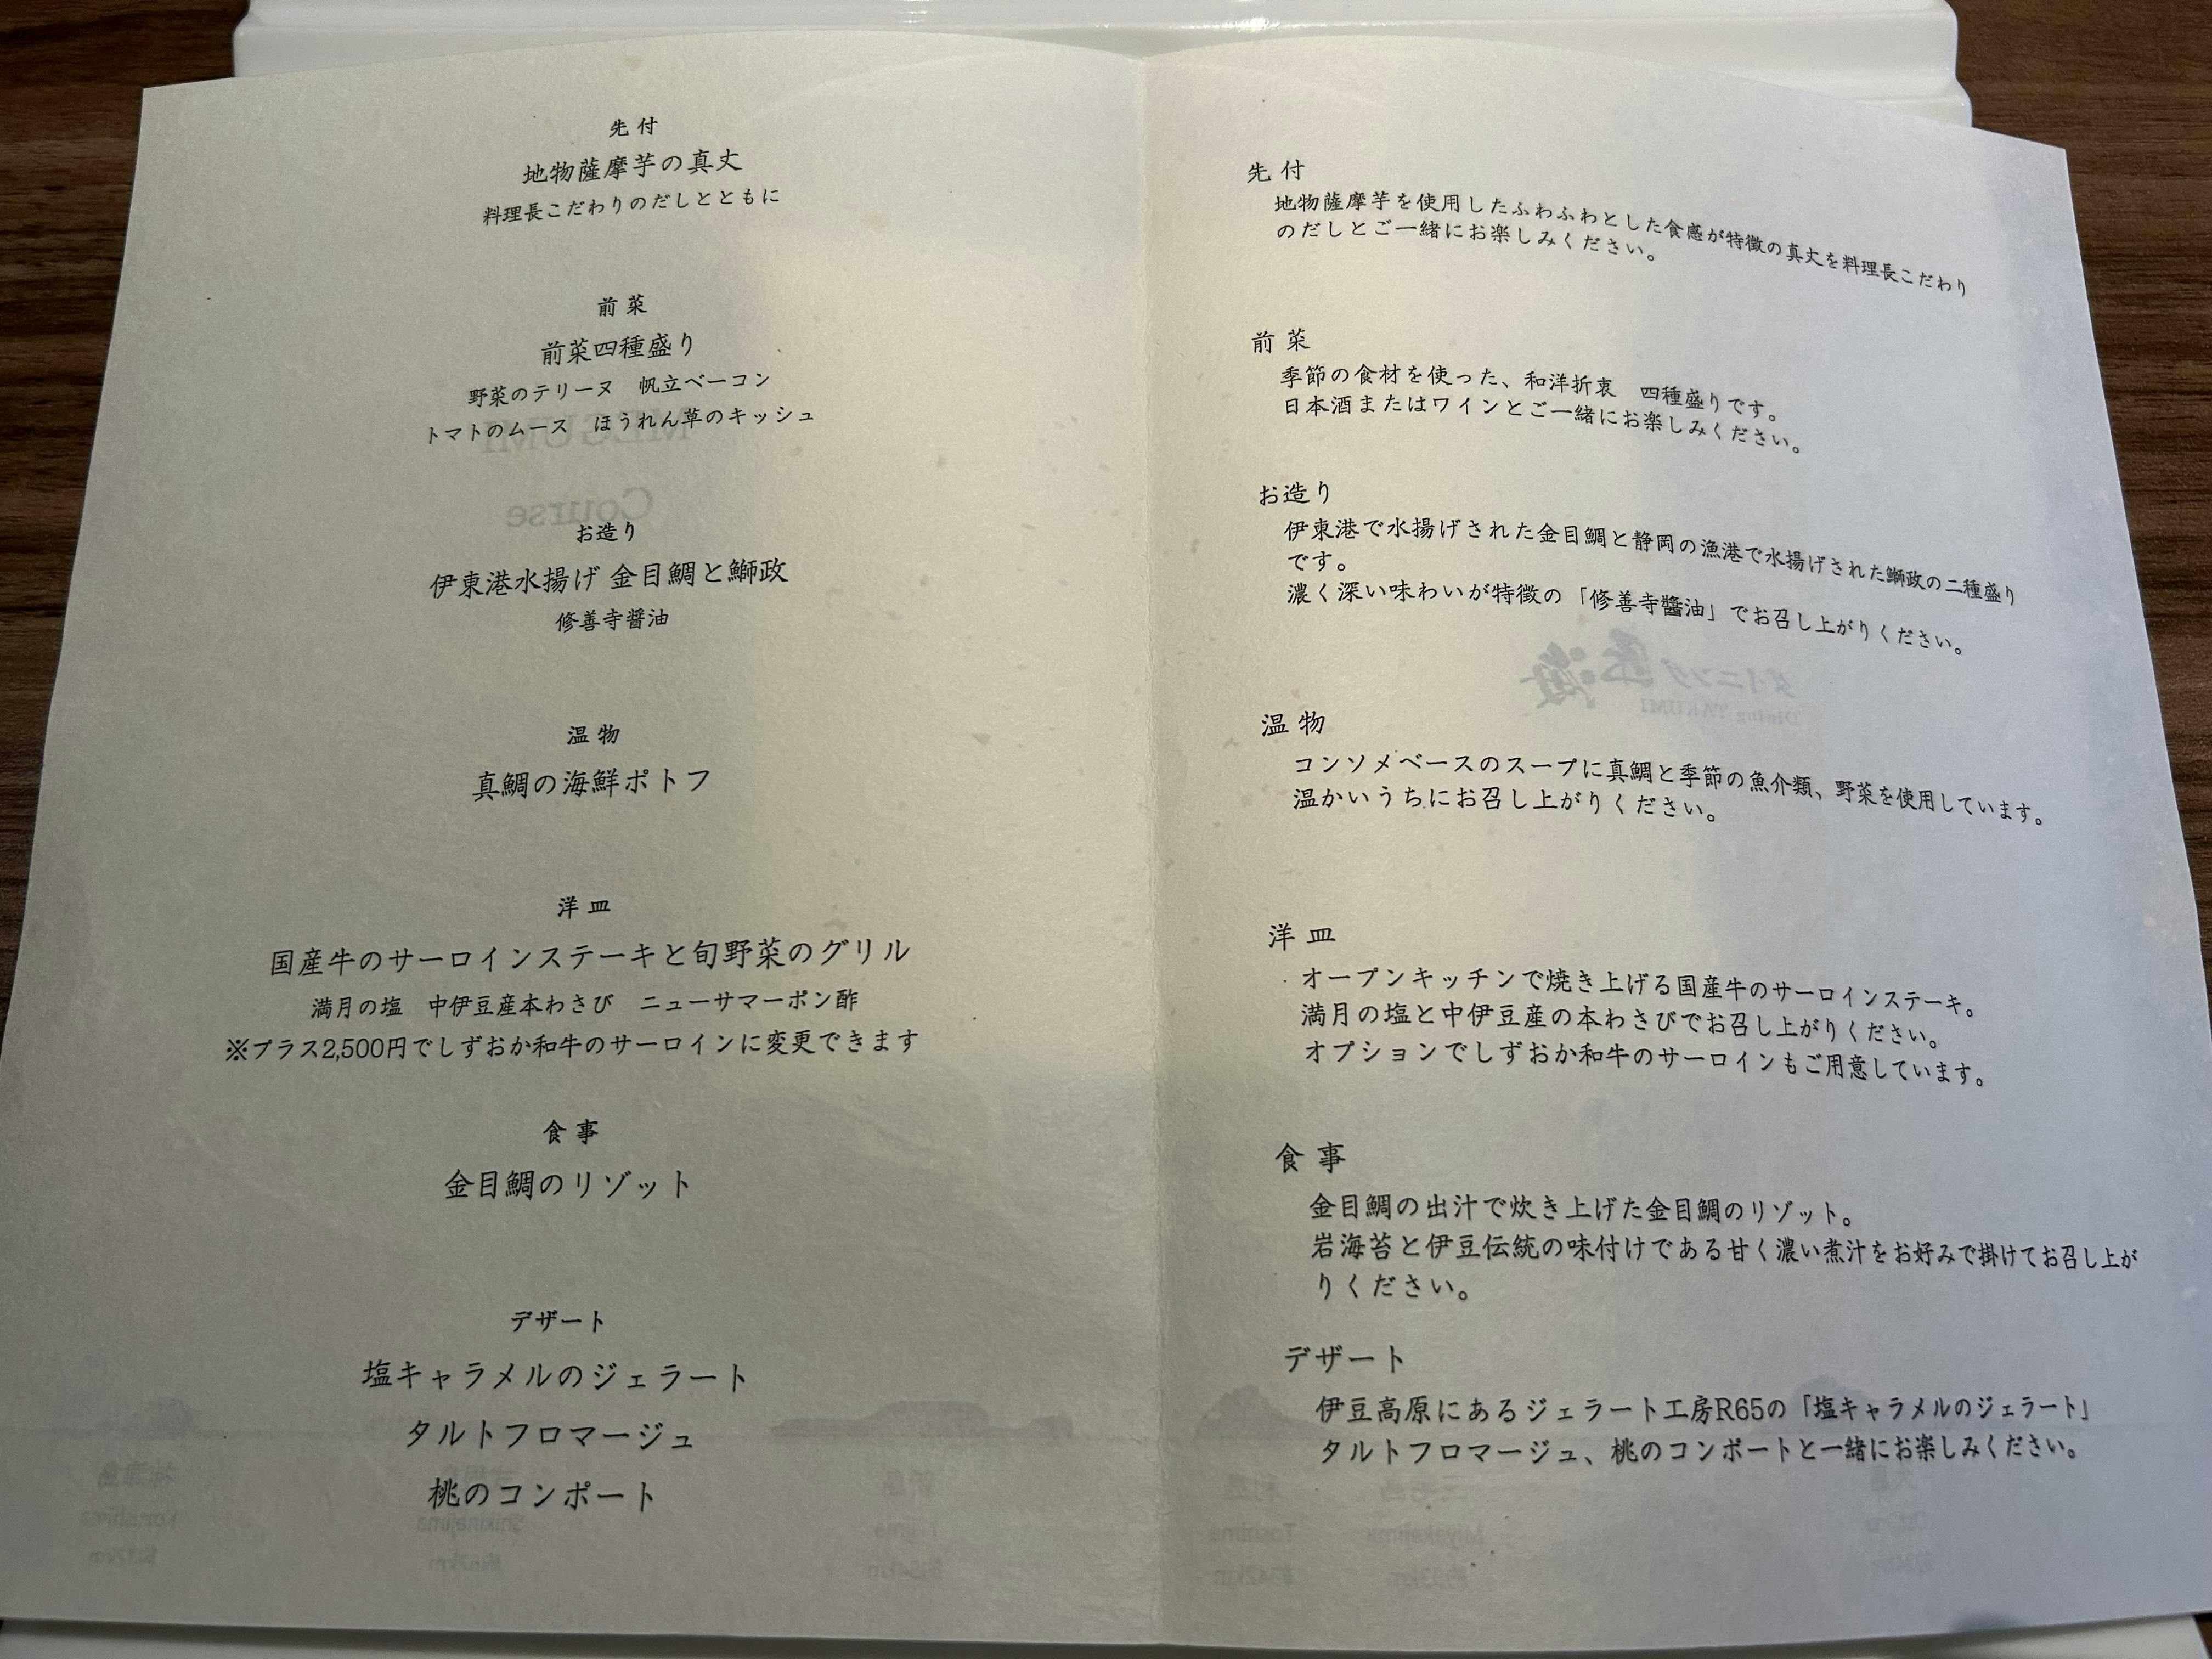 先付
地物薩摩芋の真丈
料理長こだわりのだしとともに
前菜
前菜四種盛り
野菜のテリーヌ　帆立ベーコン
トマトのムース　ほうれん草のキッシュ
お造り
伊東港水揚げ 金目鯛と鰤政
修善寺醤油
温物
真鯛の海鮮ポトフ
洋皿
国産牛のサーロインステーキと旬野菜のグリル
満月の塩　中伊豆産本わさび　ニューサマーポン酢
※プラス2,500円でしずおか和牛のサーロインに変更できます
食事
金目鯛のリゾット
デザート
塩キャラメルのジェラート
タルトフロマージュ
桃のコンポート
先付
地物薩摩芋を使用したふわふわとした食感が特徴の真丈を料理長こだわり
のだしとご一緒にお楽しみください。
前菜
季節の食材を使った、和洋折衷　四種盛りです。
日本酒またはワインとご一緒にお楽しみください。
お造り
伊東港で水揚げされた金目鯛と静岡の漁港で水揚げされた鰤政の二種盛り
です。
濃く深い味わいが特徴の「修善寺醬油」でお召し上がりください。
温物
コンソメベースのスープに真鯛と季節の魚介類、野菜を使用しています。
温かいうちにお召し上がりください。
洋皿
オープンキッチンで焼き上げる国産牛のサーロインステーキ。
満月の塩と中伊豆産の本わさびでお召し上がりください。
オプションでしずおか和牛のサーロインもご用意しています。
食事
金目鯛の出汁で炊き上げた金目鯛のリゾット。
岩海苔と伊豆伝統の味付けである甘く濃い煮汁をお好みで掛けてお召し上が
りください。
デザート
伊豆高原にあるジェラート工房R65の「塩キャラメルのジェラート」
タルトフロマージュ、桃のコンポートと一緒にお楽しみください。